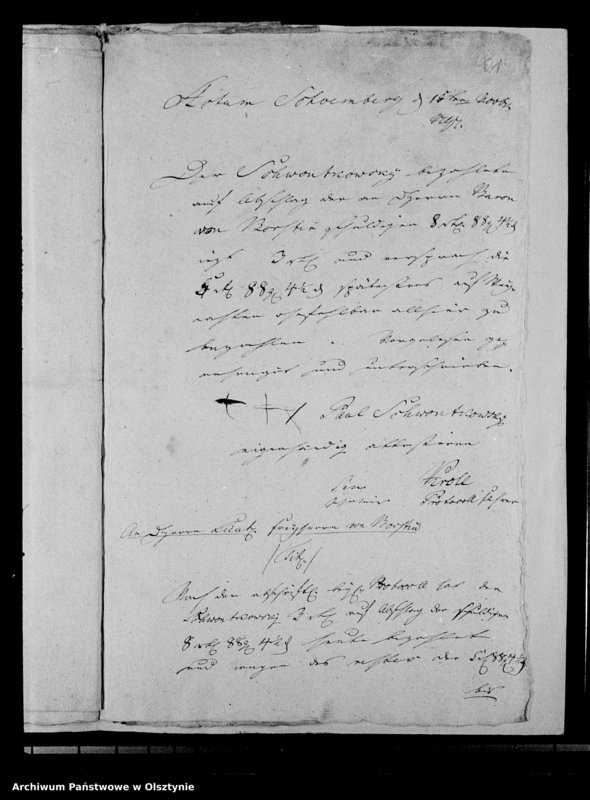 Actum Schoenberg d 15ten Novb.
Der Schwontkowsky bezahlete
auf Abschlag der an Herrn Baron
von schuldigen 8 rtl 88 g 4½ d
3 rtl und versprach die
5 rtl 88 g 4½ d spätestens auf Wey
nachten ohnfehlbar allhier zu
bezahlen. Vorgelesen ge
nehmiget und unterschrieben.
+++ Paul Schwontkowsky
eigenhändig attestiren
Kroll
Protocollführer
An Herrn Freyherrn von
/:Tit:/
Nach dem abschriftl. Protocoll hat der
Schwontkowsky 3 rtl auf Abschlag der schuldigen
8 rtl 88 g 4½ d heute bezahlet
und wegen des restes der 88 g 4½ d
bis
Archiwum Państwowe w Olsztynie